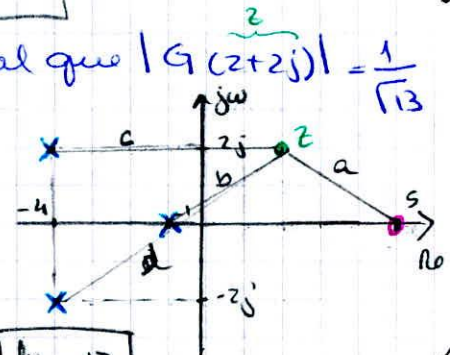 z
al que |G(2+2j)| = 1/√13
jω
c
2j
z
b
a
-4
-1
5
d
Re
-2j